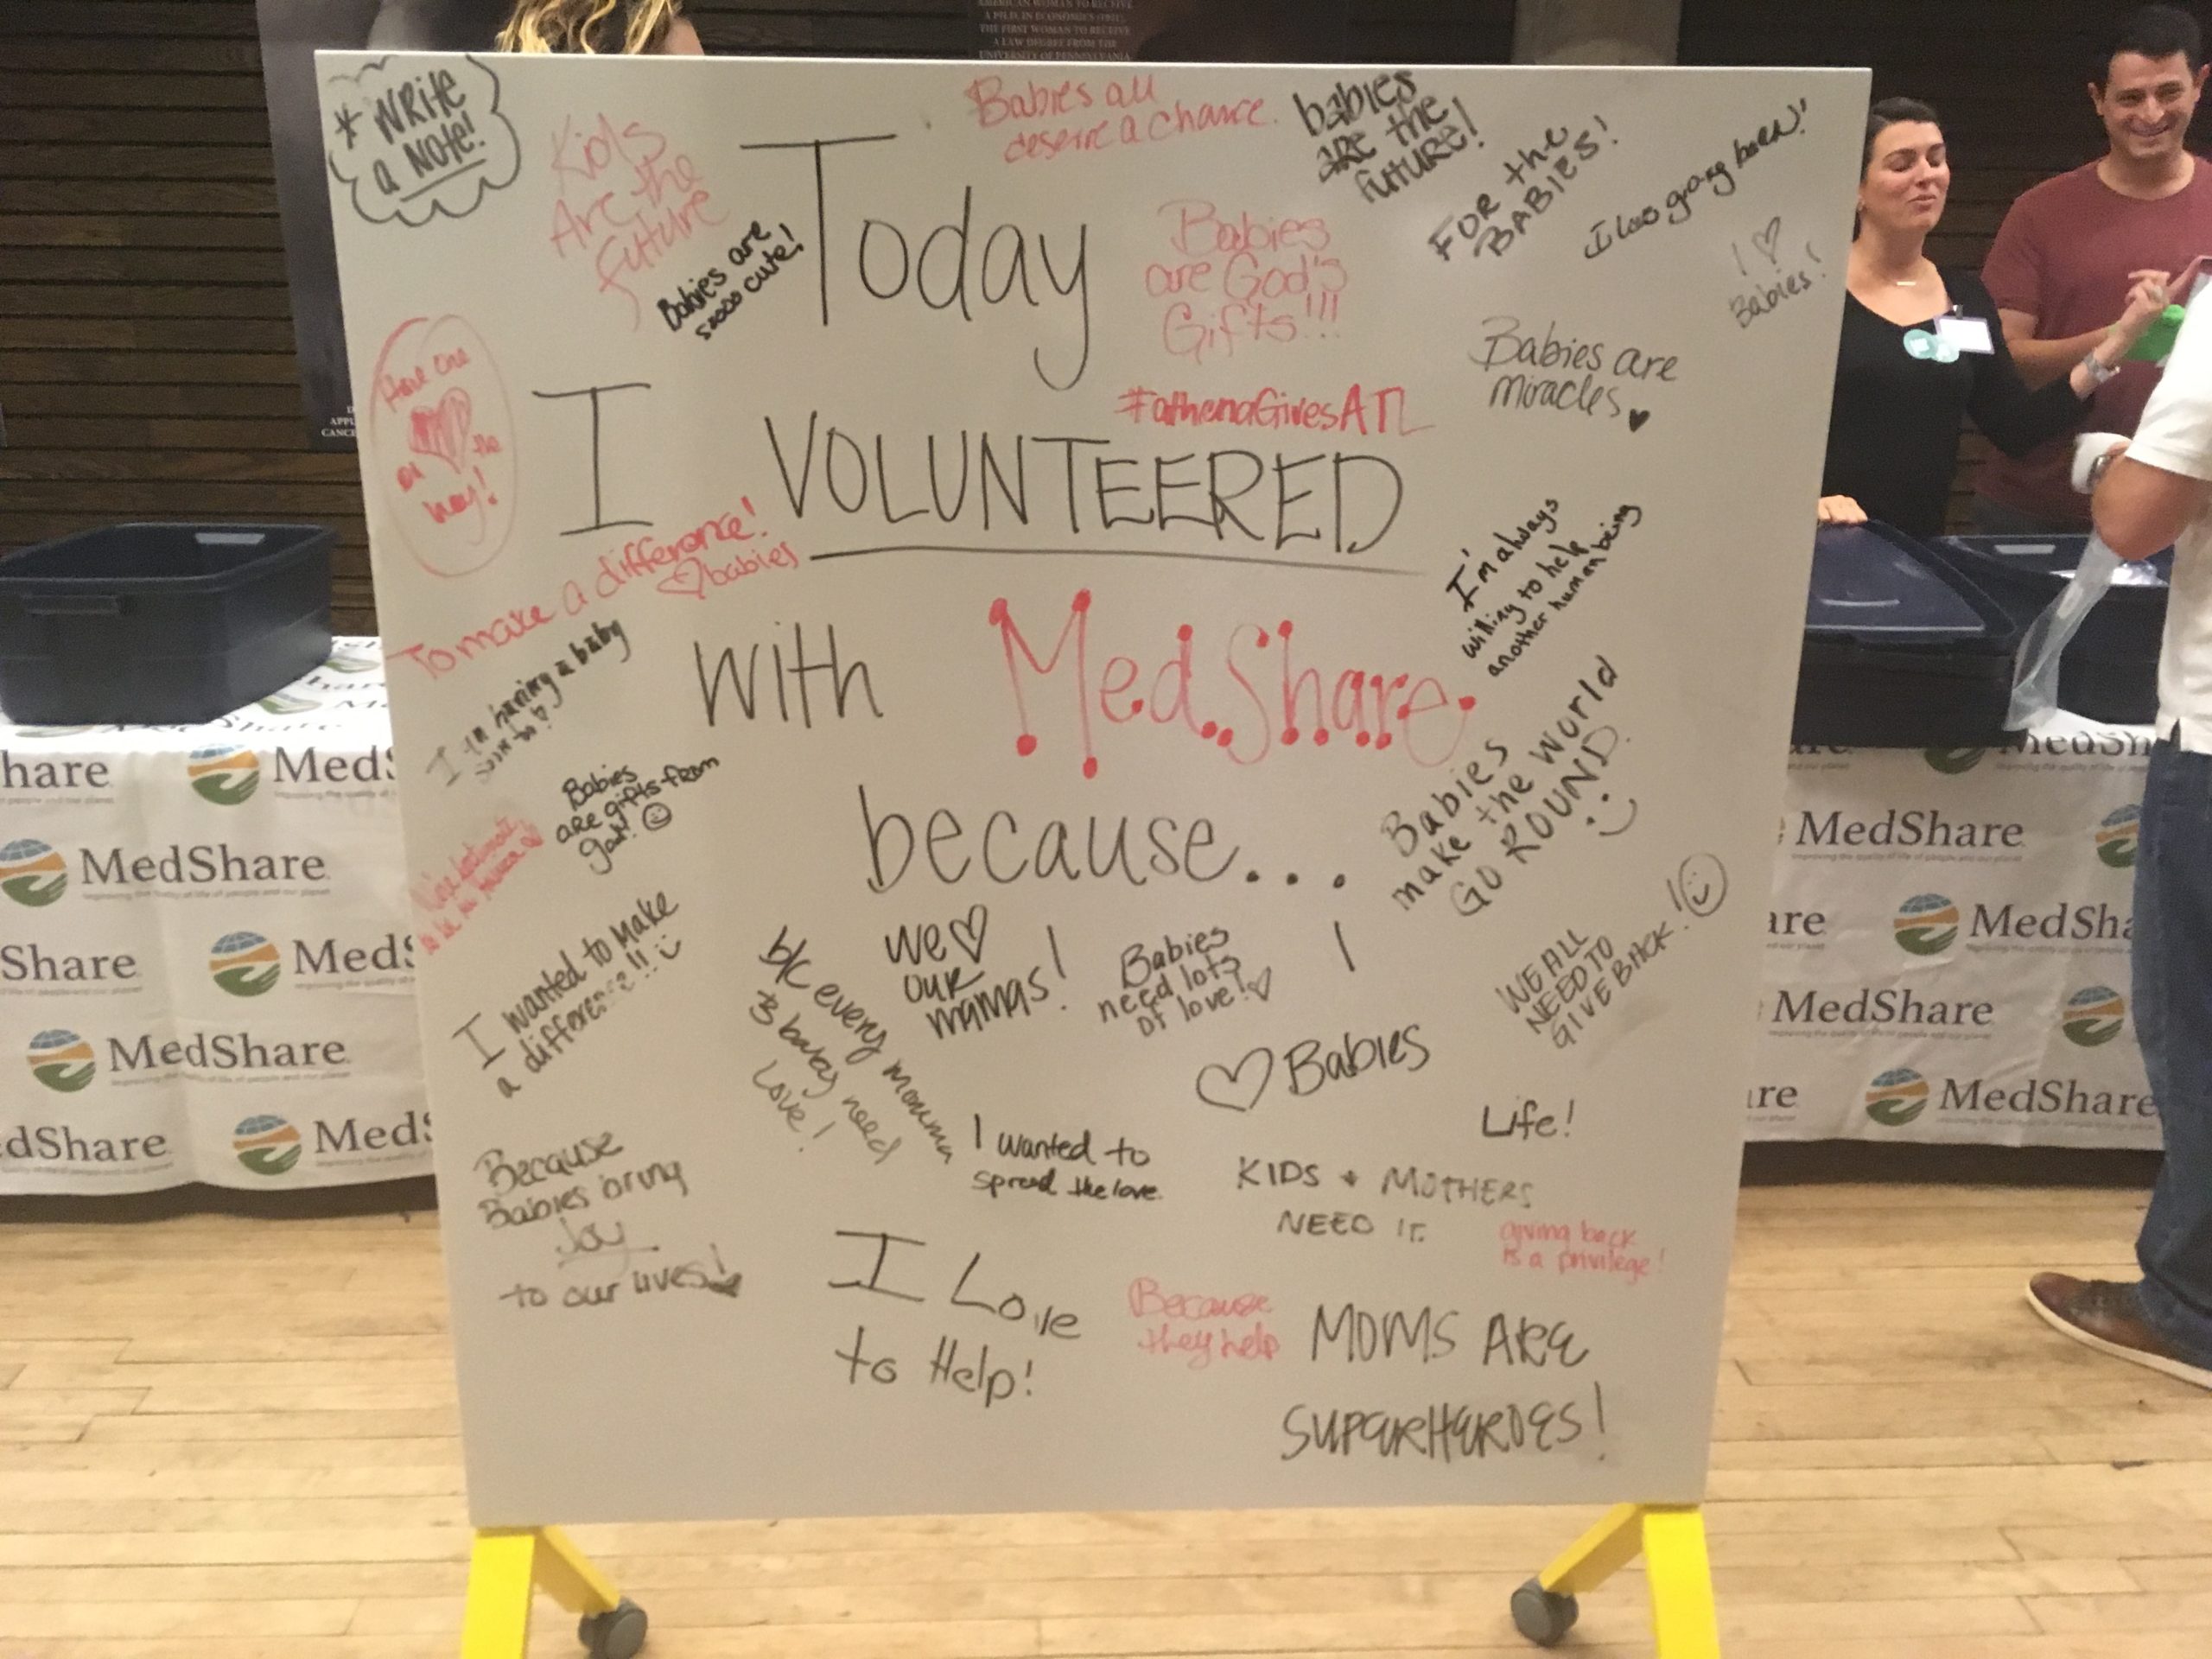 AMERICAN WOMAN TO RECEIVE
A PH.D. IN ECONOMICS (1921),
THE FIRST WOMAN TO RECEIVE
A LAW DEGREE FROM THE
UNIVERSITY OF PENNSYLVANIA
* WRite
a NOTE!
Kids
Are the
future
Babies are
soooo cute!
Babies all
deserve a chance.
babies
are the
future!
FOR the
BABIES!
I love giving back!
I ♡
Babies!
Today
Babies
are God's
Gifts!!!
Babies are
miracles ♥
#athenaGivesATL
Have one
on the
way!
I VOLUNTEERED
To make a difference!
♡ babies
I'm always
willing to help
another human being
with MedShare
I'm having a baby
soon too!
Babies
are gifts from
God! ☺
because...
Babies
make the world
GO ROUND.
:)
I wanted to make
a difference!!! :)
b/c every momma
& baby need
Love!
We ♡
our
mamas!
Babies
need lots
of love! ♡
I
♡ Babies
WE ALL
NEED TO
GIVE BACK! ☺
Life!
Because
Babies bring
Joy
to our lives! ♥
I wanted to
spread the love.
KIDS + MOTHERS
NEED IT.
giving back
is a privilege!
I Love
to Help!
Because
they help
MOMS ARE
SUPERHEROES!
hare
MedS
MedShare
Share
MedS
MedShare
dShare
MedS
MedSh
MedShare
are
MedSha
MedShare
re
MedShare